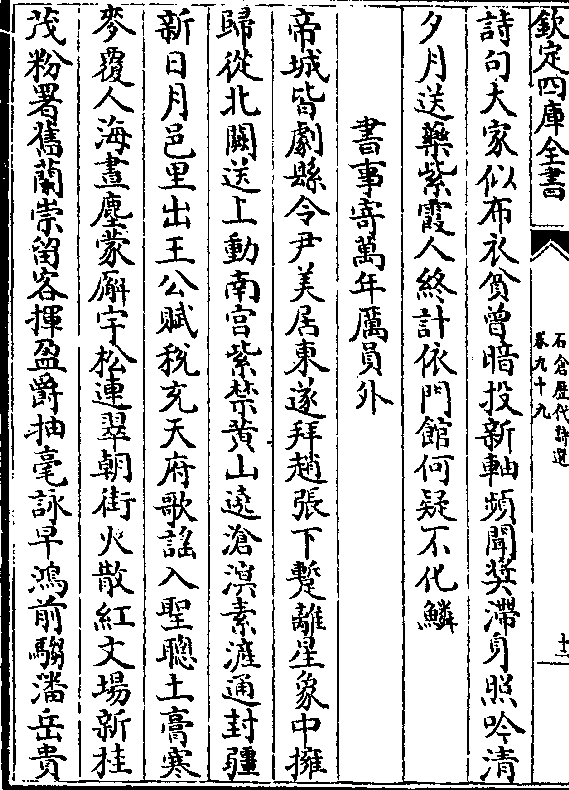 欽定四庫全書
石倉歴代詩選
卷九十九
十三
詩句大家似布衣貧曽暗投新軸頻聞奬滯身照吟清
夕月送藥紫霞人終計依門館何疑不化鱗
書事寄萬年厲員外
帝城皆劇縣令尹美居東遂拜趙張下蹔離星象中擁
歸從北闕送上動南宫紫禁黄山遶滄溟素滻通封疆
新日月邑里出王公賦稅充天府歌謡入聖聰土膏寒
麥覆人海晝塵蒙廨宇松連翠朝街火散紅文場新桂
茂粉署舊蘭崇留客揮盈爵抽毫詠早鴻前騶潘岳貴